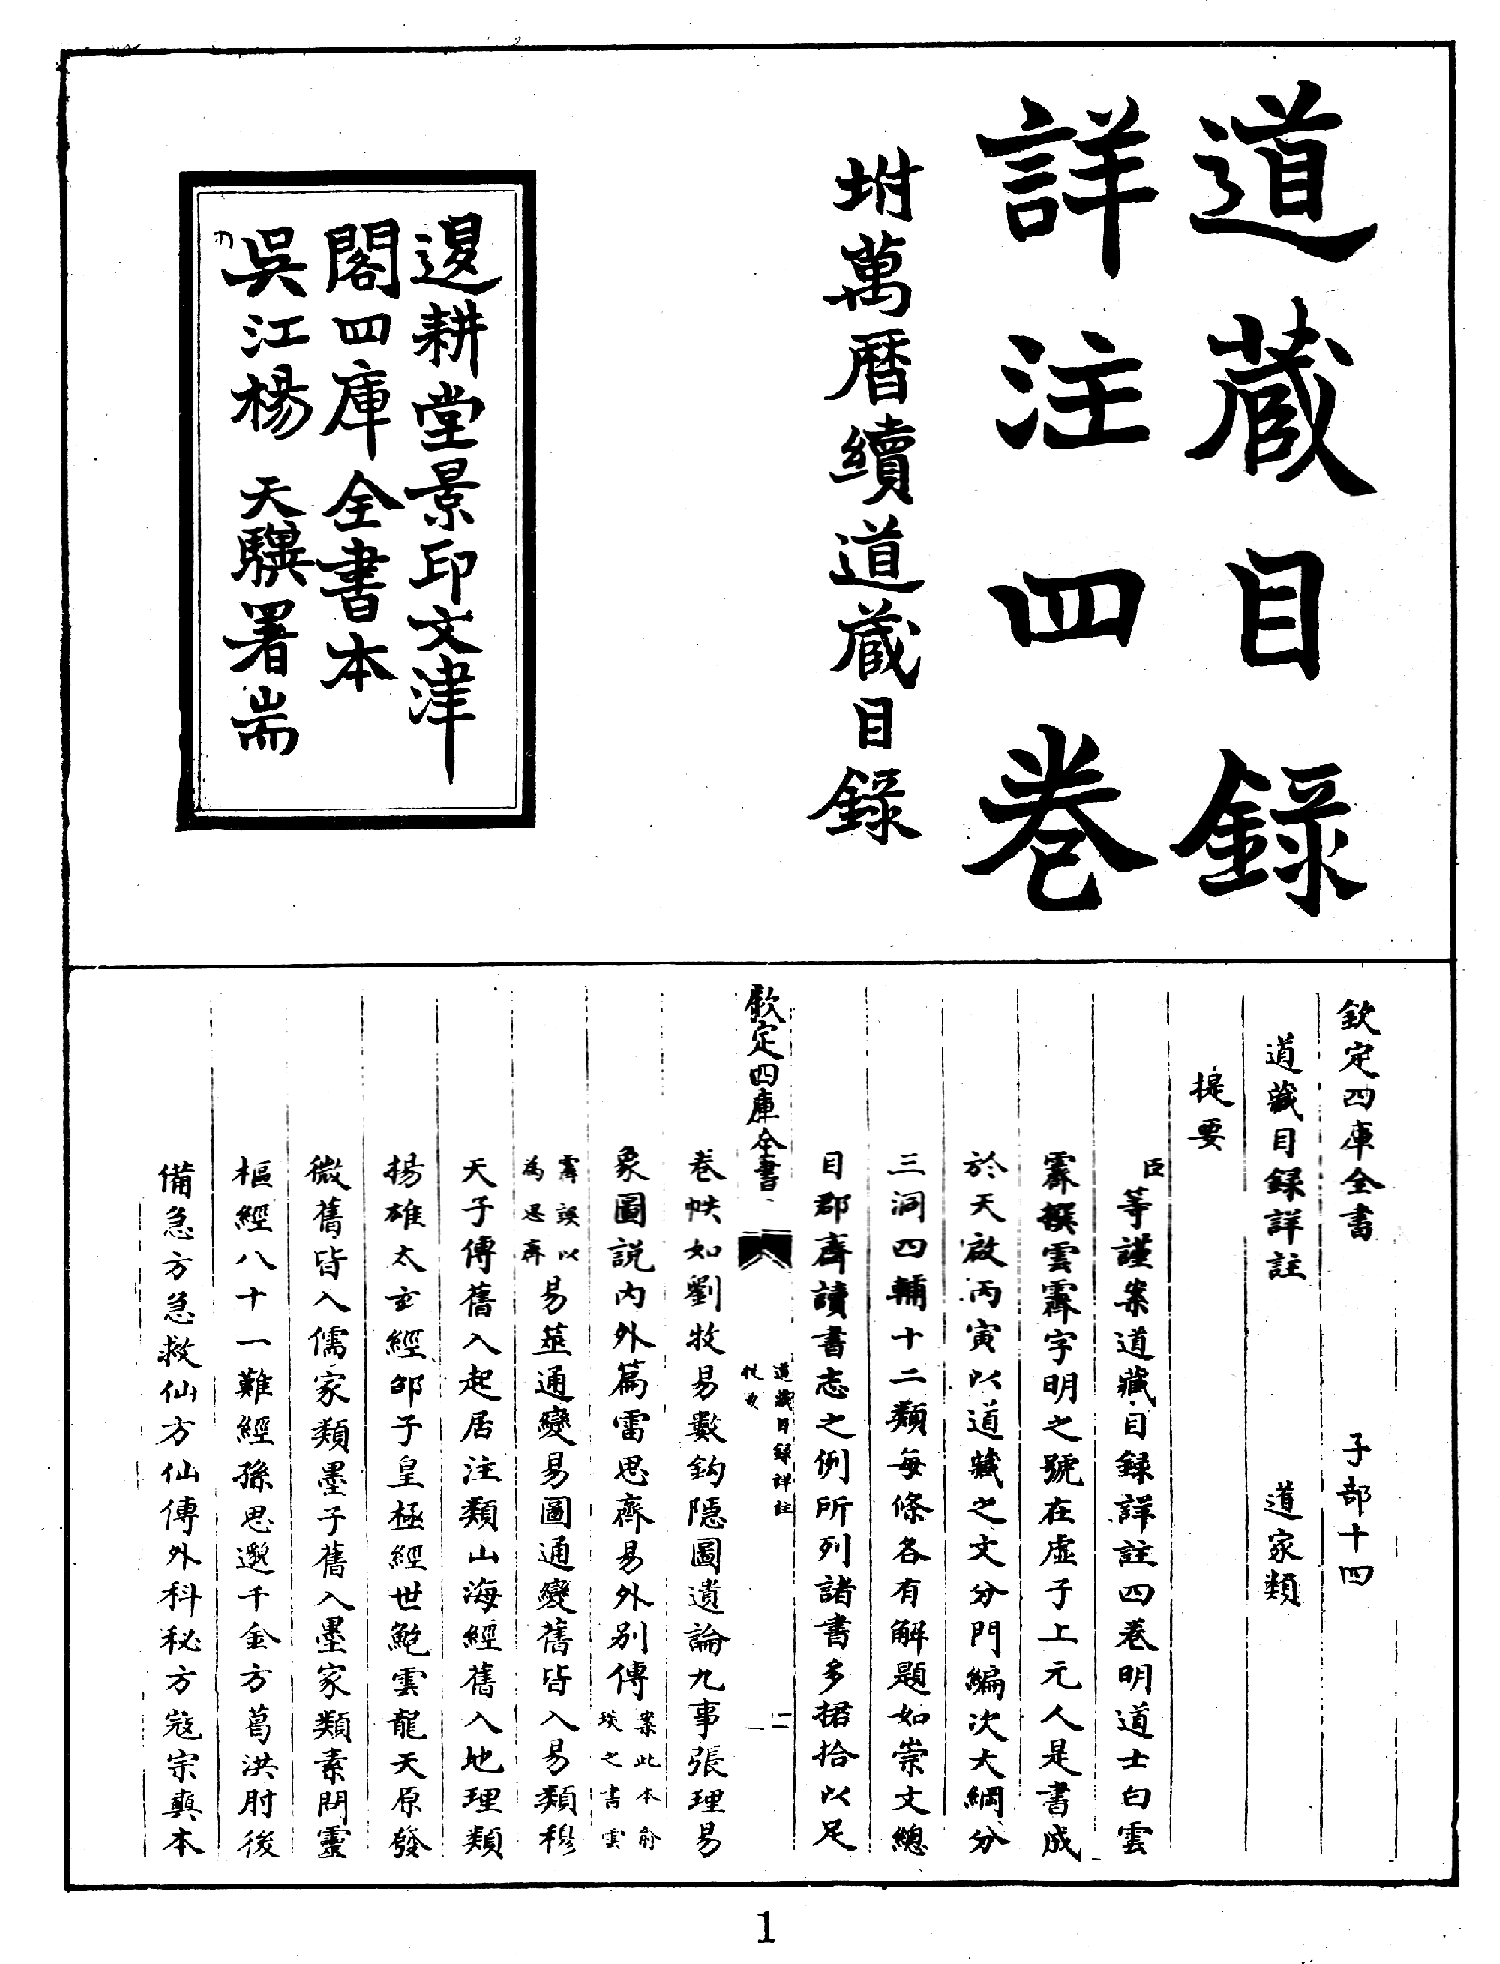 道藏目錄
詳注四卷
坿萬曆續道藏目錄
退耕堂景印文津
閣四庫全書本
吳江楊天驥署耑
欽定四庫全書　子部十四
道藏目録詳註　道家類
提要
臣等謹案道藏目録詳註四卷明道士白雲
霽撰雲霽字明之號在虛子上元人是書成
於天啟丙寅以道藏之文分門編次大綱分
三洞四輔十二類每條各有解題如崇文總
目郡齋讀書志之例所列諸書多捃拾以足
欽定四庫全書
道藏目録詳註
提要
二
一
卷帙如劉牧易數鈎隱圖遺論九事張理易
象圖說內外篇雷思齊易外別傳案此本俞琰之書雲
霽誤以為思齊易筮通變易圖通變舊皆入易類穆
天子傳舊入起居注類山海經舊入地理類
揚雄太玄經邵子皇極經世鮑雲龍天原發
微舊皆入儒家類墨子舊入墨家類素問靈
樞經八十一難經孫思邈千金方葛洪肘後
備急方急救仙方仙傳外科秘方寇宗奭本
1